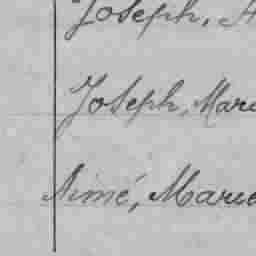 Joseph, A
Joseph, Marc
Aimé, Marce